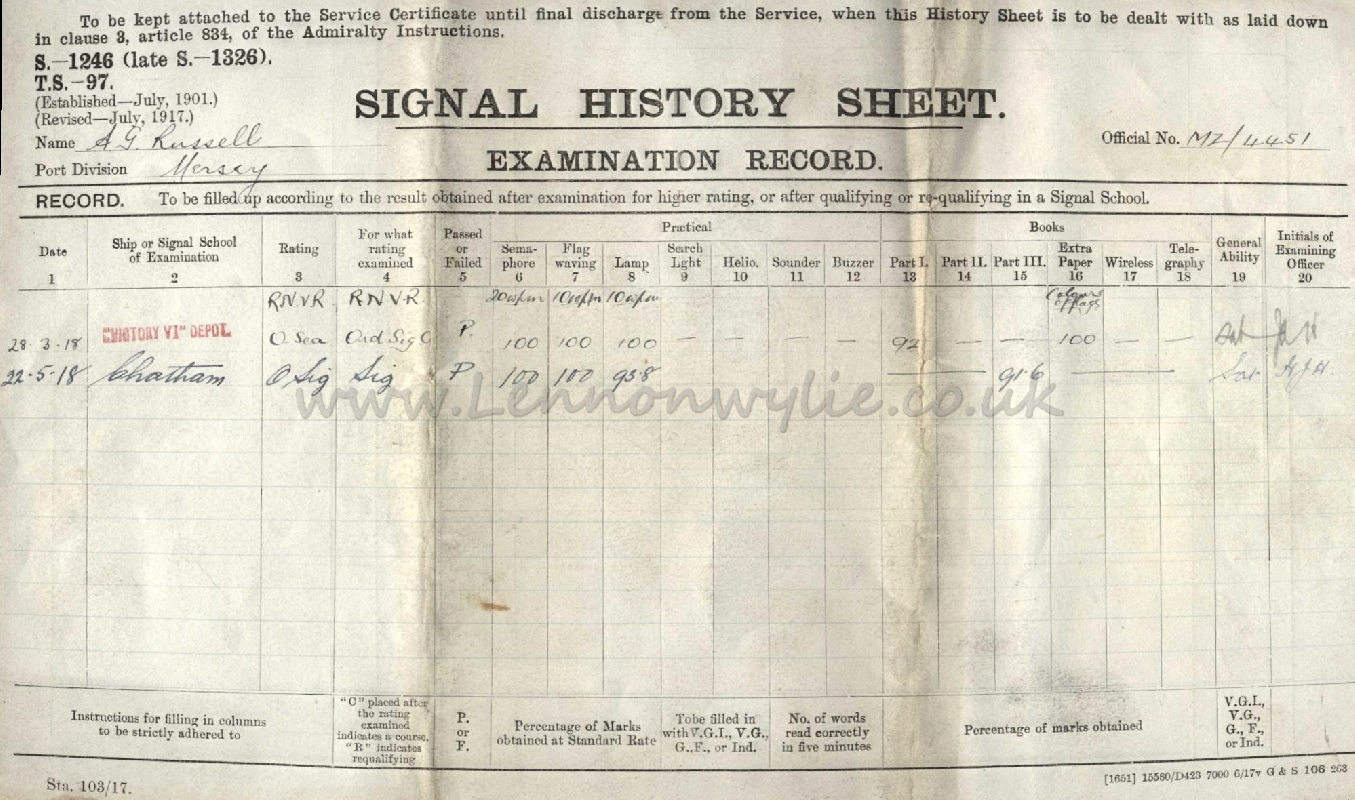 To be kept attached to the Service Certificate until final discharge from the Service, when this History Sheet is to be dealt with as laid down
in clause 3, article 834, of the Admiralty Instructions.
S.—1246 (late S.—1326).
T.S.—97.
(Established—July, 1901.)
(Revised—July, 1917.)
SIGNAL HISTORY SHEET.
Name A G Russell
Official No. MZ/4451
Port Division Mersey
EXAMINATION RECORD.
RECORD. To be filled up according to the result obtained after examination for higher rating, or after qualifying or re-qualifying in a Signal School.
Date 1
Ship or Signal School of Examination 2
Rating 3
For what rating examined 4
Passed or Failed 5
Practical
Sema- phore 6
Flag waving 7
Lamp 8
Search Lght 9
Helio. 10
Sounder 11
Buzzer 12
Books
Part I. 13
Part II. 14
Part III. 15
Extra Paper 16
Wireless 17
Tele- graphy 18
General Ability 19
Initials of Examining Officer 20
RNVR RNVR 20wpm 10wpm 10wpm Colours & flags
28·3·18 "VICTORY VI" DEPOT. O Sea Ord Sig C P. 100 100 100 — — — — 92 — — 100 — — Sat
22·5·18 Chatham O Sig Sig P 100 100 93·8 91·6 Sat
www.Lennonwylie.co.uk
Instructions for filling in columns to be strictly adhered to
"C" placed after the rating examined indicates a course. "R" indicates requalifying
P. or F.
Percentage of Marks obtained at Standard Rate
To be filled in with V.G.I., V.G., G., F., or Ind.
No. of words read correctly in five minutes
Percentage of marks obtained
V.G.I., V.G., G., F., or Ind.
Sta. 103/17.
[1651] 15580/D423 7000 6/17v G & S 106 263